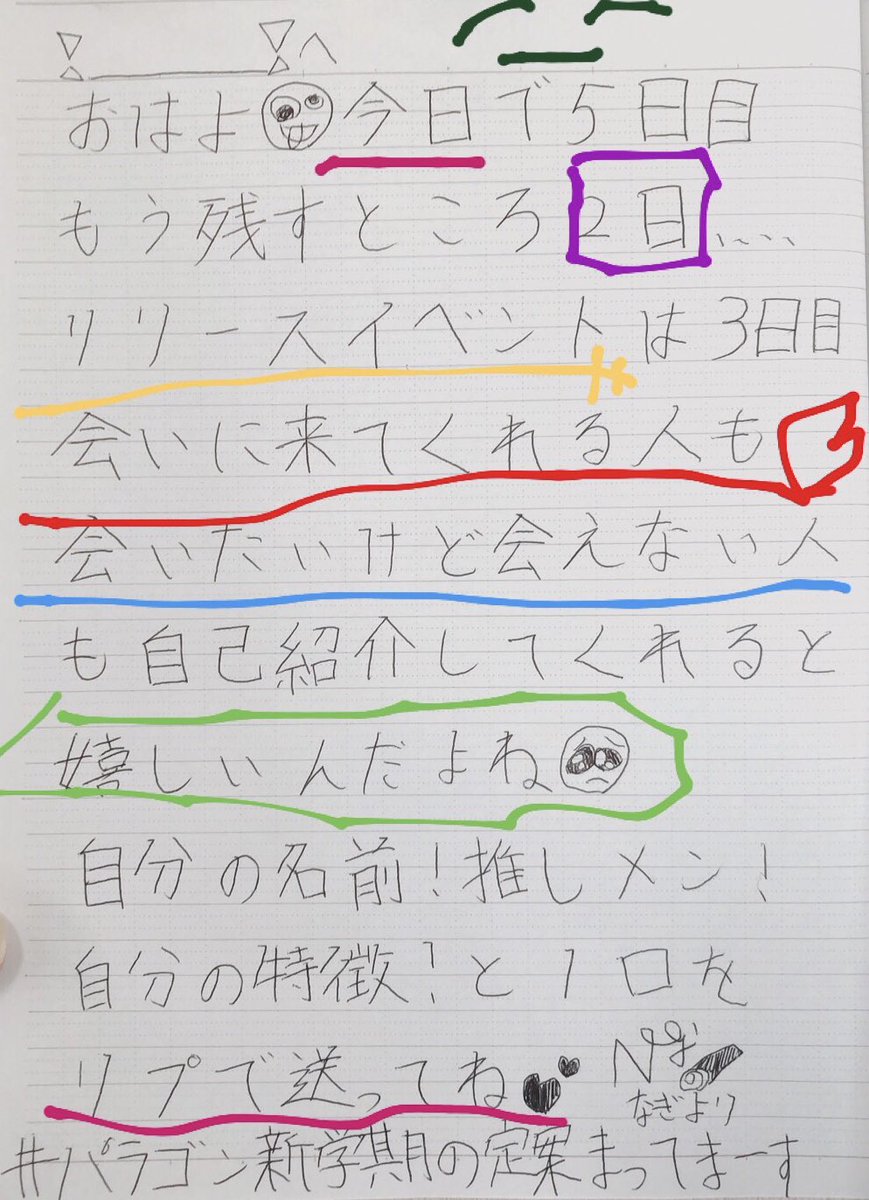 へ
おはよ今日で5日目
もう残すところ2日、、、、
リリースイベントは3日目
会いに来てくれる人も
会いたいけど会えない人
も自己紹介してくれると
嬉しいんだよね
自分の名前!推しメン!
自分の特徴!と1口を
リプで送ってね
なぎより
#パラゴン新学期の定案まってまーす